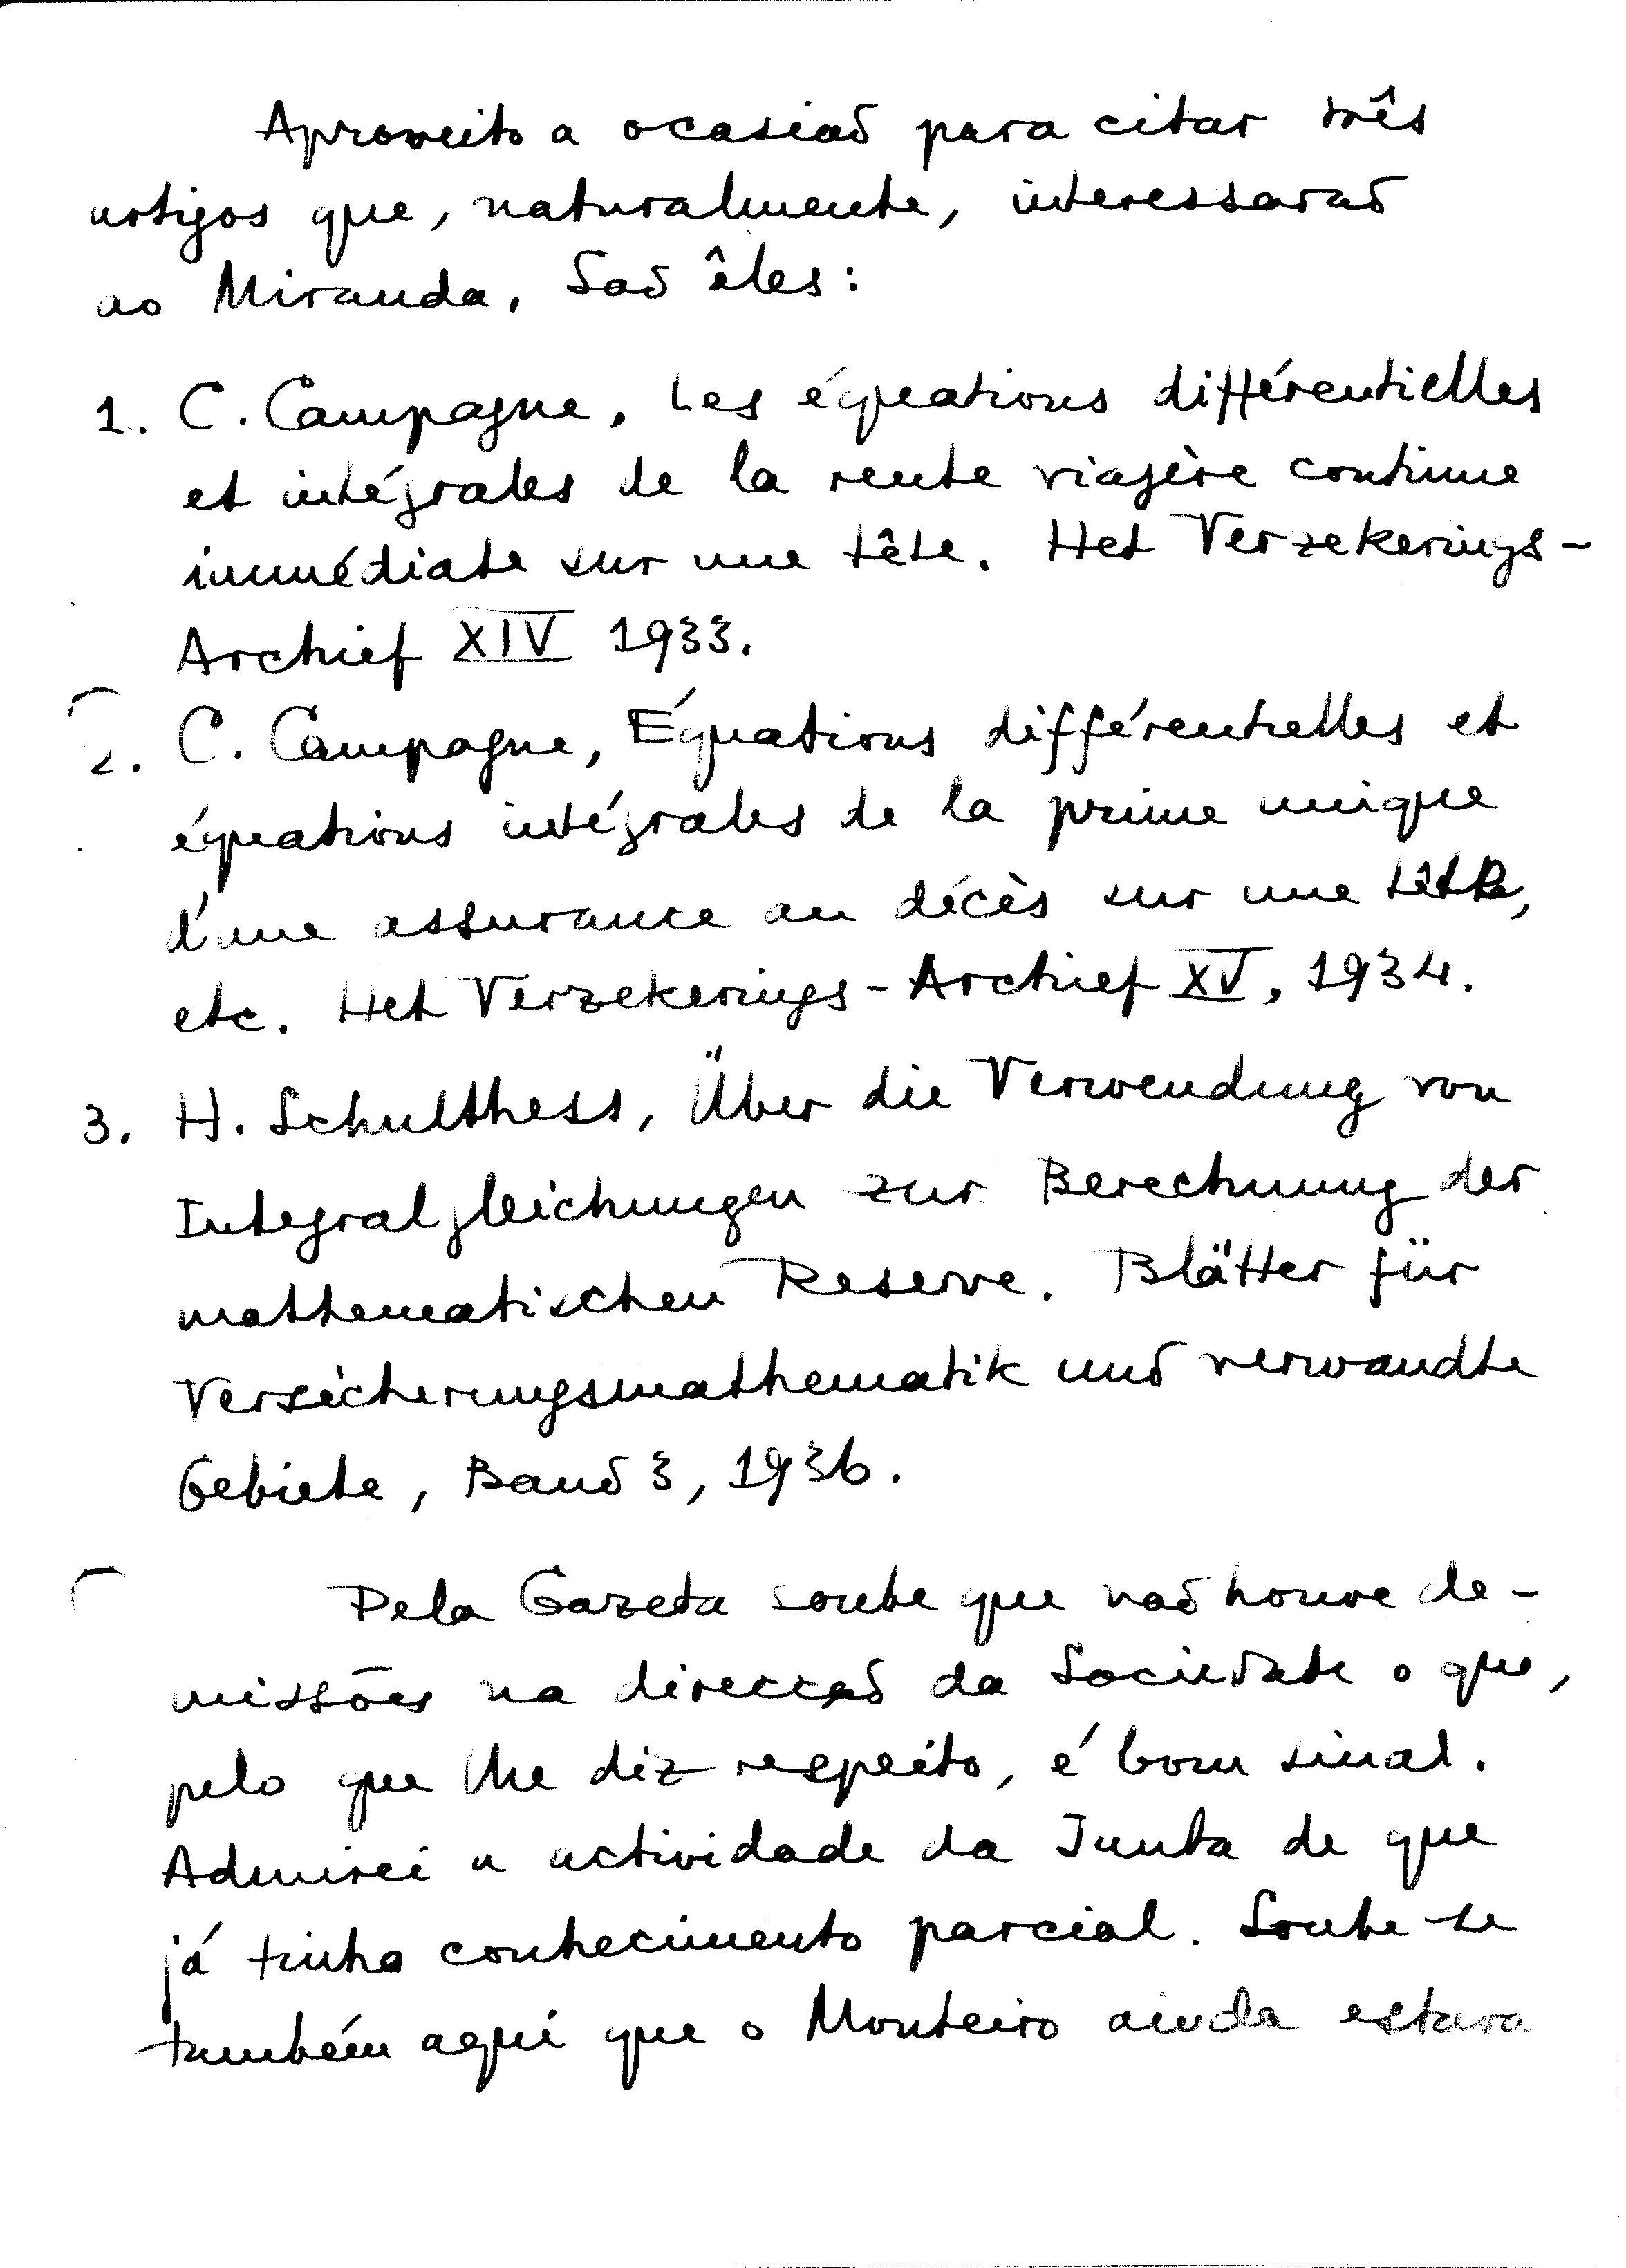 Aproveito a ocasião para citar três
artigos que, naturalmente, interessarão
ao Miranda. São êles:
1. C. Campagne, Les équations différentielles
et intégrales de la rente viagère continue
immédiate sur une tête. Het Verzekerings-
Archief XIV 1933.
2. C. Campagne, Équations différentielles et
équations intégrales de la prime unique
d'une assurance au décès sur une tête,
etc. Het Verzekerings-Archief XV, 1934.
3. H. Schulthess, Über die Verwendung von
Integralgleichungen zur Berechnung der
mathematischen Reserve. Blätter für
Versicherungsmathematik und verwandte
Gebiete, Band 3, 1936.
Pela Gazeta soube que não houve de-
missões na direcção da Sociedade o que,
pelo que lhe diz respeito, é bom sinal.
Admirei a actividade da Junta de que
já tinha conhecimento parcial. Soube-se
também aqui que o Monteiro ainda estava